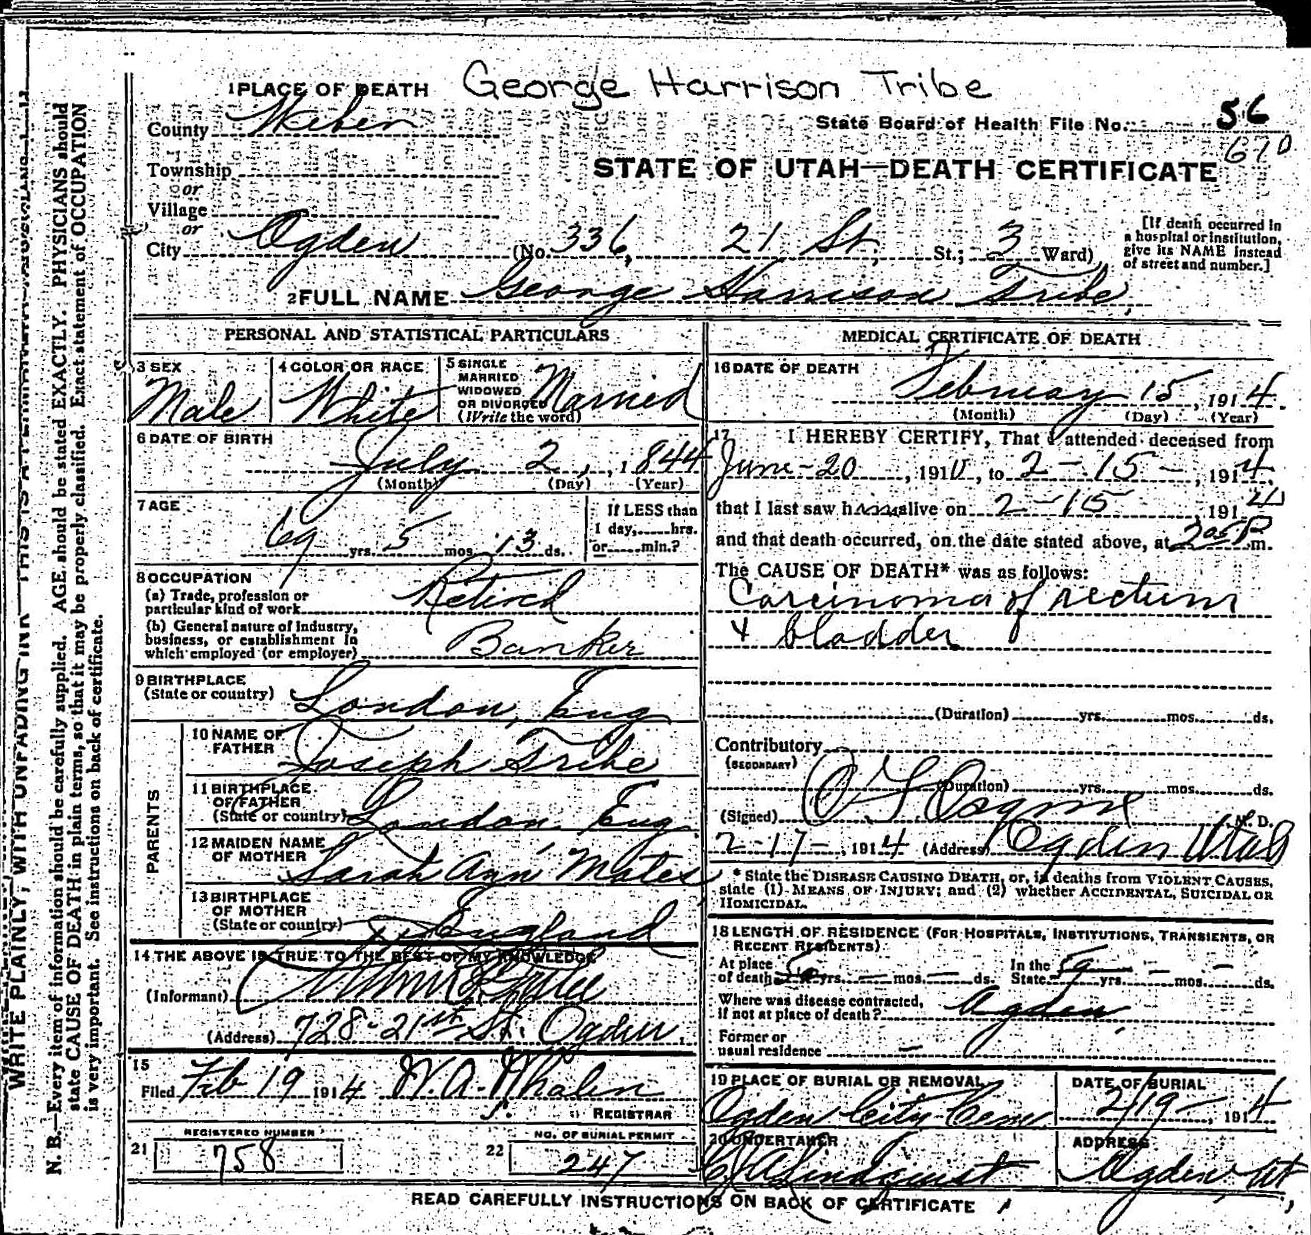 George Harrison Tribe
1 PLACE OF DEATH
County Weber
State Board of Health File No. 56
670
Township
or
STATE OF UTAH—DEATH CERTIFICATE
Village
or
City Ogden (No. 336, 21 St, St.; 3 Ward)
[If death occurred in
a hospital or institution,
give its NAME instead
of street and number.]
2 FULL NAME George Harrison Tribe
PERSONAL AND STATISTICAL PARTICULARS
3 SEX
Male
4 COLOR OR RACE
White
5 SINGLE
MARRIED
WIDOWED
OR DIVORCED
(Write the word)
Married
6 DATE OF BIRTH
July 2, 1844
(Month) (Day) (Year)
7 AGE
69 yrs. 5 mos. 13 ds.
If LESS than
1 day,......hrs.
or......min.?
8 OCCUPATION
(a) Trade, profession or
particular kind of work Retired
(b) General nature of industry,
business, or establishment in
which employed (or employer) Banker
9 BIRTHPLACE
(State or country) London, Eng
PARENTS
10 NAME OF
FATHER Joseph Tribe
11 BIRTHPLACE
OF FATHER
(State or country) London, Eng
12 MAIDEN NAME
OF MOTHER Sarah Ann Mates
13 BIRTHPLACE
OF MOTHER
(State or country) England
14 THE ABOVE IS TRUE TO THE BEST OF MY KNOWLEDGE
(Informant)
(Address) 728-21st St. Ogden.
15
Filed Feb 19 1914 W. A. Whalen
REGISTRAR
REGISTERED NUMBER
21 758
NO. OF BURIAL PERMIT
22 247
MEDICAL CERTIFICATE OF DEATH
16 DATE OF DEATH
February 15, 1914.
(Month) (Day) (Year)
17 I HEREBY CERTIFY, That I attended deceased from
June-20, 1910, to 2-15-1914
that I last saw him alive on 2-15, 191
and that death occurred, on the date stated above, at 205P m.
The CAUSE OF DEATH* was as follows:
Carcinoma of rectum
& bladder
(Duration) yrs. mos. ds.
Contributory
(SECONDARY)
(Duration) yrs. mos. ds.
(Signed) M. D.
2-17-, 1914 (Address) Ogden Utah
* State the DISEASE CAUSING DEATH, or, in deaths from VIOLENT CAUSES,
state (1) MEANS OF INJURY; and (2) whether ACCIDENTAL, SUICIDAL OR
HOMICIDAL.
18 LENGTH OF RESIDENCE (FOR HOSPITALS, INSTITUTIONS, TRANSIENTS, OR
RECENT RESIDENTS)
At place
of death yrs. — mos. — ds.
In the
State 59 yrs. — mos. — ds.
Where was disease contracted,
if not at place of death? Ogden
Former or
usual residence —
19 PLACE OF BURIAL OR REMOVAL
Ogden City Cem
DATE OF BURIAL
2/19-, 1914
20 UNDERTAKER
Lindquist
ADDRESS
Ogden, Ut
READ CAREFULLY INSTRUCTIONS ON BACK OF CERTIFICATE
N. B.—Every item of information should be carefully supplied. AGE should be stated EXACTLY. PHYSICIANS should
state CAUSE OF DEATH in plain terms, so that it may be properly classified. Exact statement of OCCUPATION
is very important. See instructions on back of certificate.
WRITE PLAINLY, WITH UNFADING INK—THIS IS A